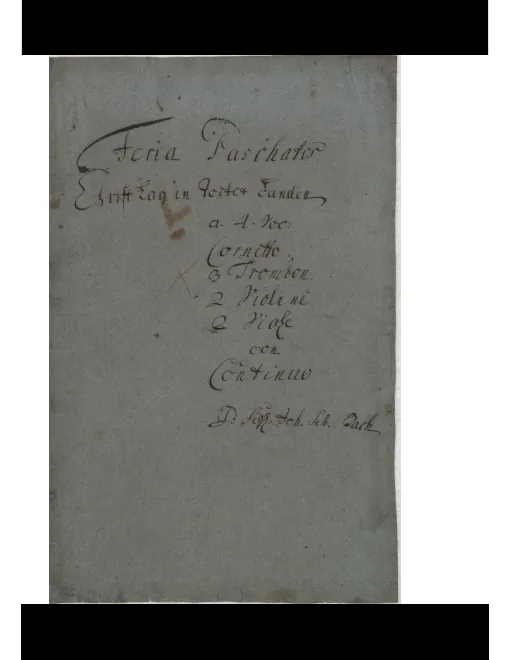 Feria Paschatos
Christ lag in Todes Banden
a. 4. Voc.
Cornetto.
3 Trombon.
2 Violini
2 Viole
con
Continuo
D. Sigre. Joh. Seb. Bach